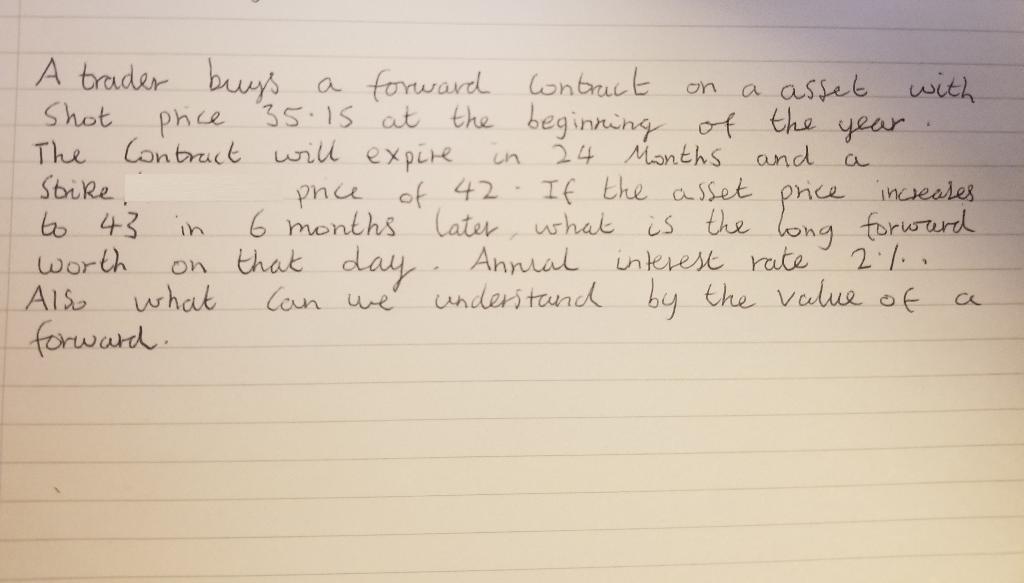 A trader buys a forward Contract on a asset with
Shot price 35.15 at the beginning of the year.
The Contract will expire in 24 Months and a
Strike price of 42. If the asset price increases
to 43 in 6 months later, what is the long forward
worth on that day. Annual interest rate 2%.
Also what Can we understand by the value of a
forward.